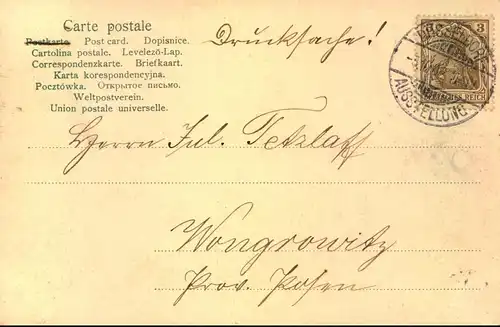 Carte postale
Postkarte. Post card. Dopisnice.
Cartolina postale. Levelező-Lap.
Correspondenzkarte. Briefkaart.
Karta korespondencyjna.
Pocztówka. Открытое письмо.
Weltpostverein.
Union postale universelle.
Drucksache!
3
REICH
AUSSTELLUNG
Herrn Jul. Tetzlaff
Wongrowitz
Prov. Posen